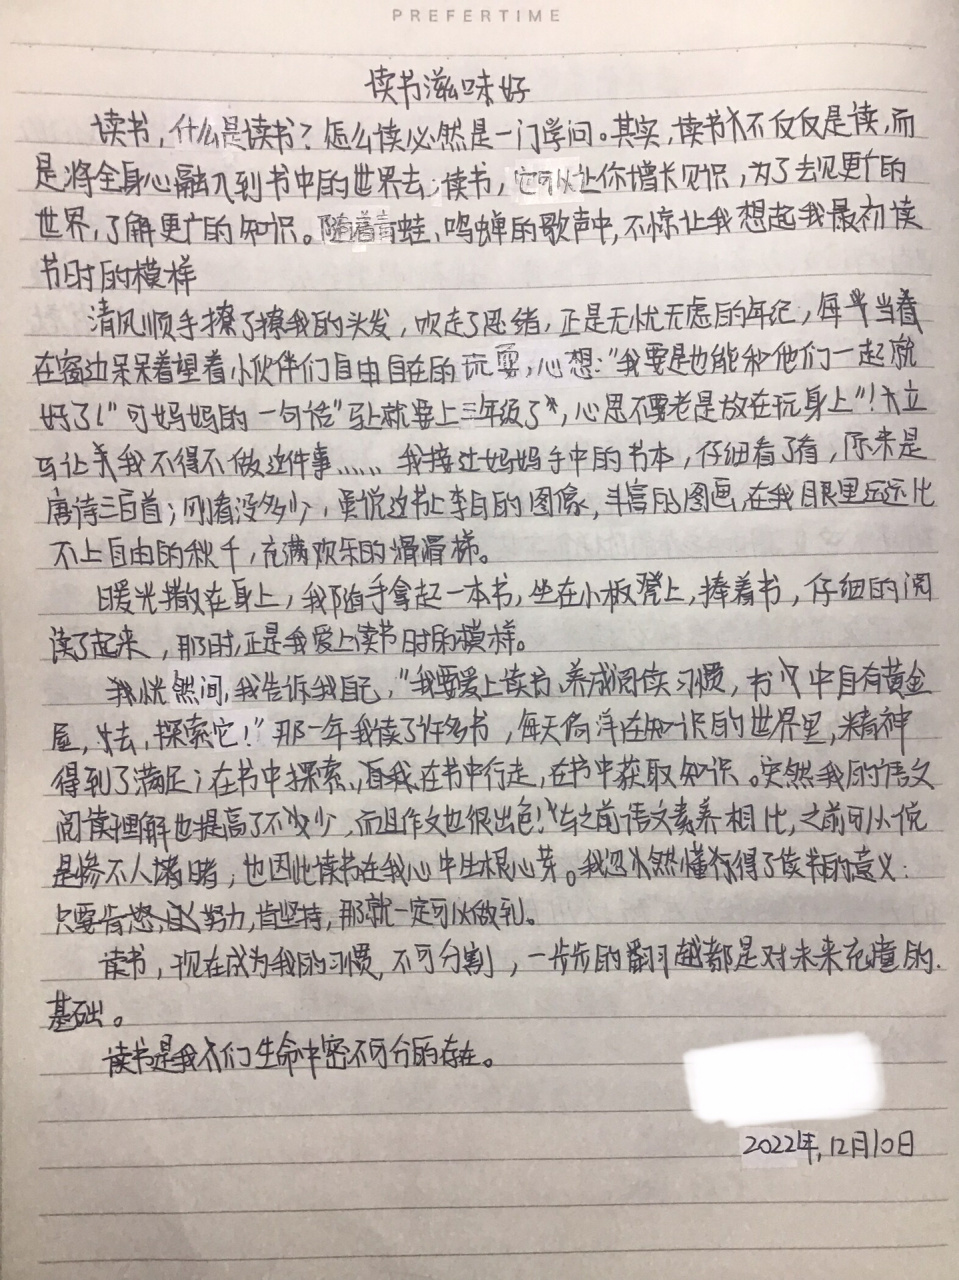 PREFERTIME
读书滋味好
读书,什么是读书?怎么读必然是一门学问。其实,读书不仅仅是读,而
是将全身心融入到书中的世界去;读书,它可以让你增长见识,为了去见更广的
世界,了解更广的知识。随着青蛙、鸣蝉的歌声中,不惊让我想起我最初读
书时的模样
清风顺手撩了撩我的头发,吹走了思绪,正是无忧无虑的年纪,每当看
在窗边呆呆着望着小伙伴们自由自在的玩耍,心想:“我要是也能和他们一起就
好了!”可妈妈的一句话“马上就要上三年级了,心思不要老是放在玩身上”!立
马让我不得不做这件事…… 我接过妈妈手中的书本,仔细看了看,原来是
唐诗三百首;刚看没多少,虽说这书上李白的图像,丰富的图画,在我眼里远远比
不上自由的秋千,充满欢乐的滑滑梯。
暖光撒在身上,我随手拿起一本书,坐在小板凳上,捧着书,仔细的阅
读了起来,那时,正是我爱上读书时的模样。
我恍然间,我告诉我自己,“我要爱上读书、养成阅读习惯,书中自有黄金
屋,去,探索它!”那一年我读了许多书,每天徜洋在知识的世界里,精神
得到了满足;在书中探索,在书中行走,在书中获取知识。突然我的语文
阅读理解也提高了不少,而且作文也很出色!与之前语文素养相比,之前可以说
是惨不人睹,也因此读书在我心中生根心芽。我忽然懂得了读书的意义:
只要肯努力,肯坚持,那就一定可以做到。
读书,现在成为我的习惯,不可分割,一步步的翻越都是对未来充憧的
基础。
读书是我们生命中密不可分的存在。
2022年,12月10日